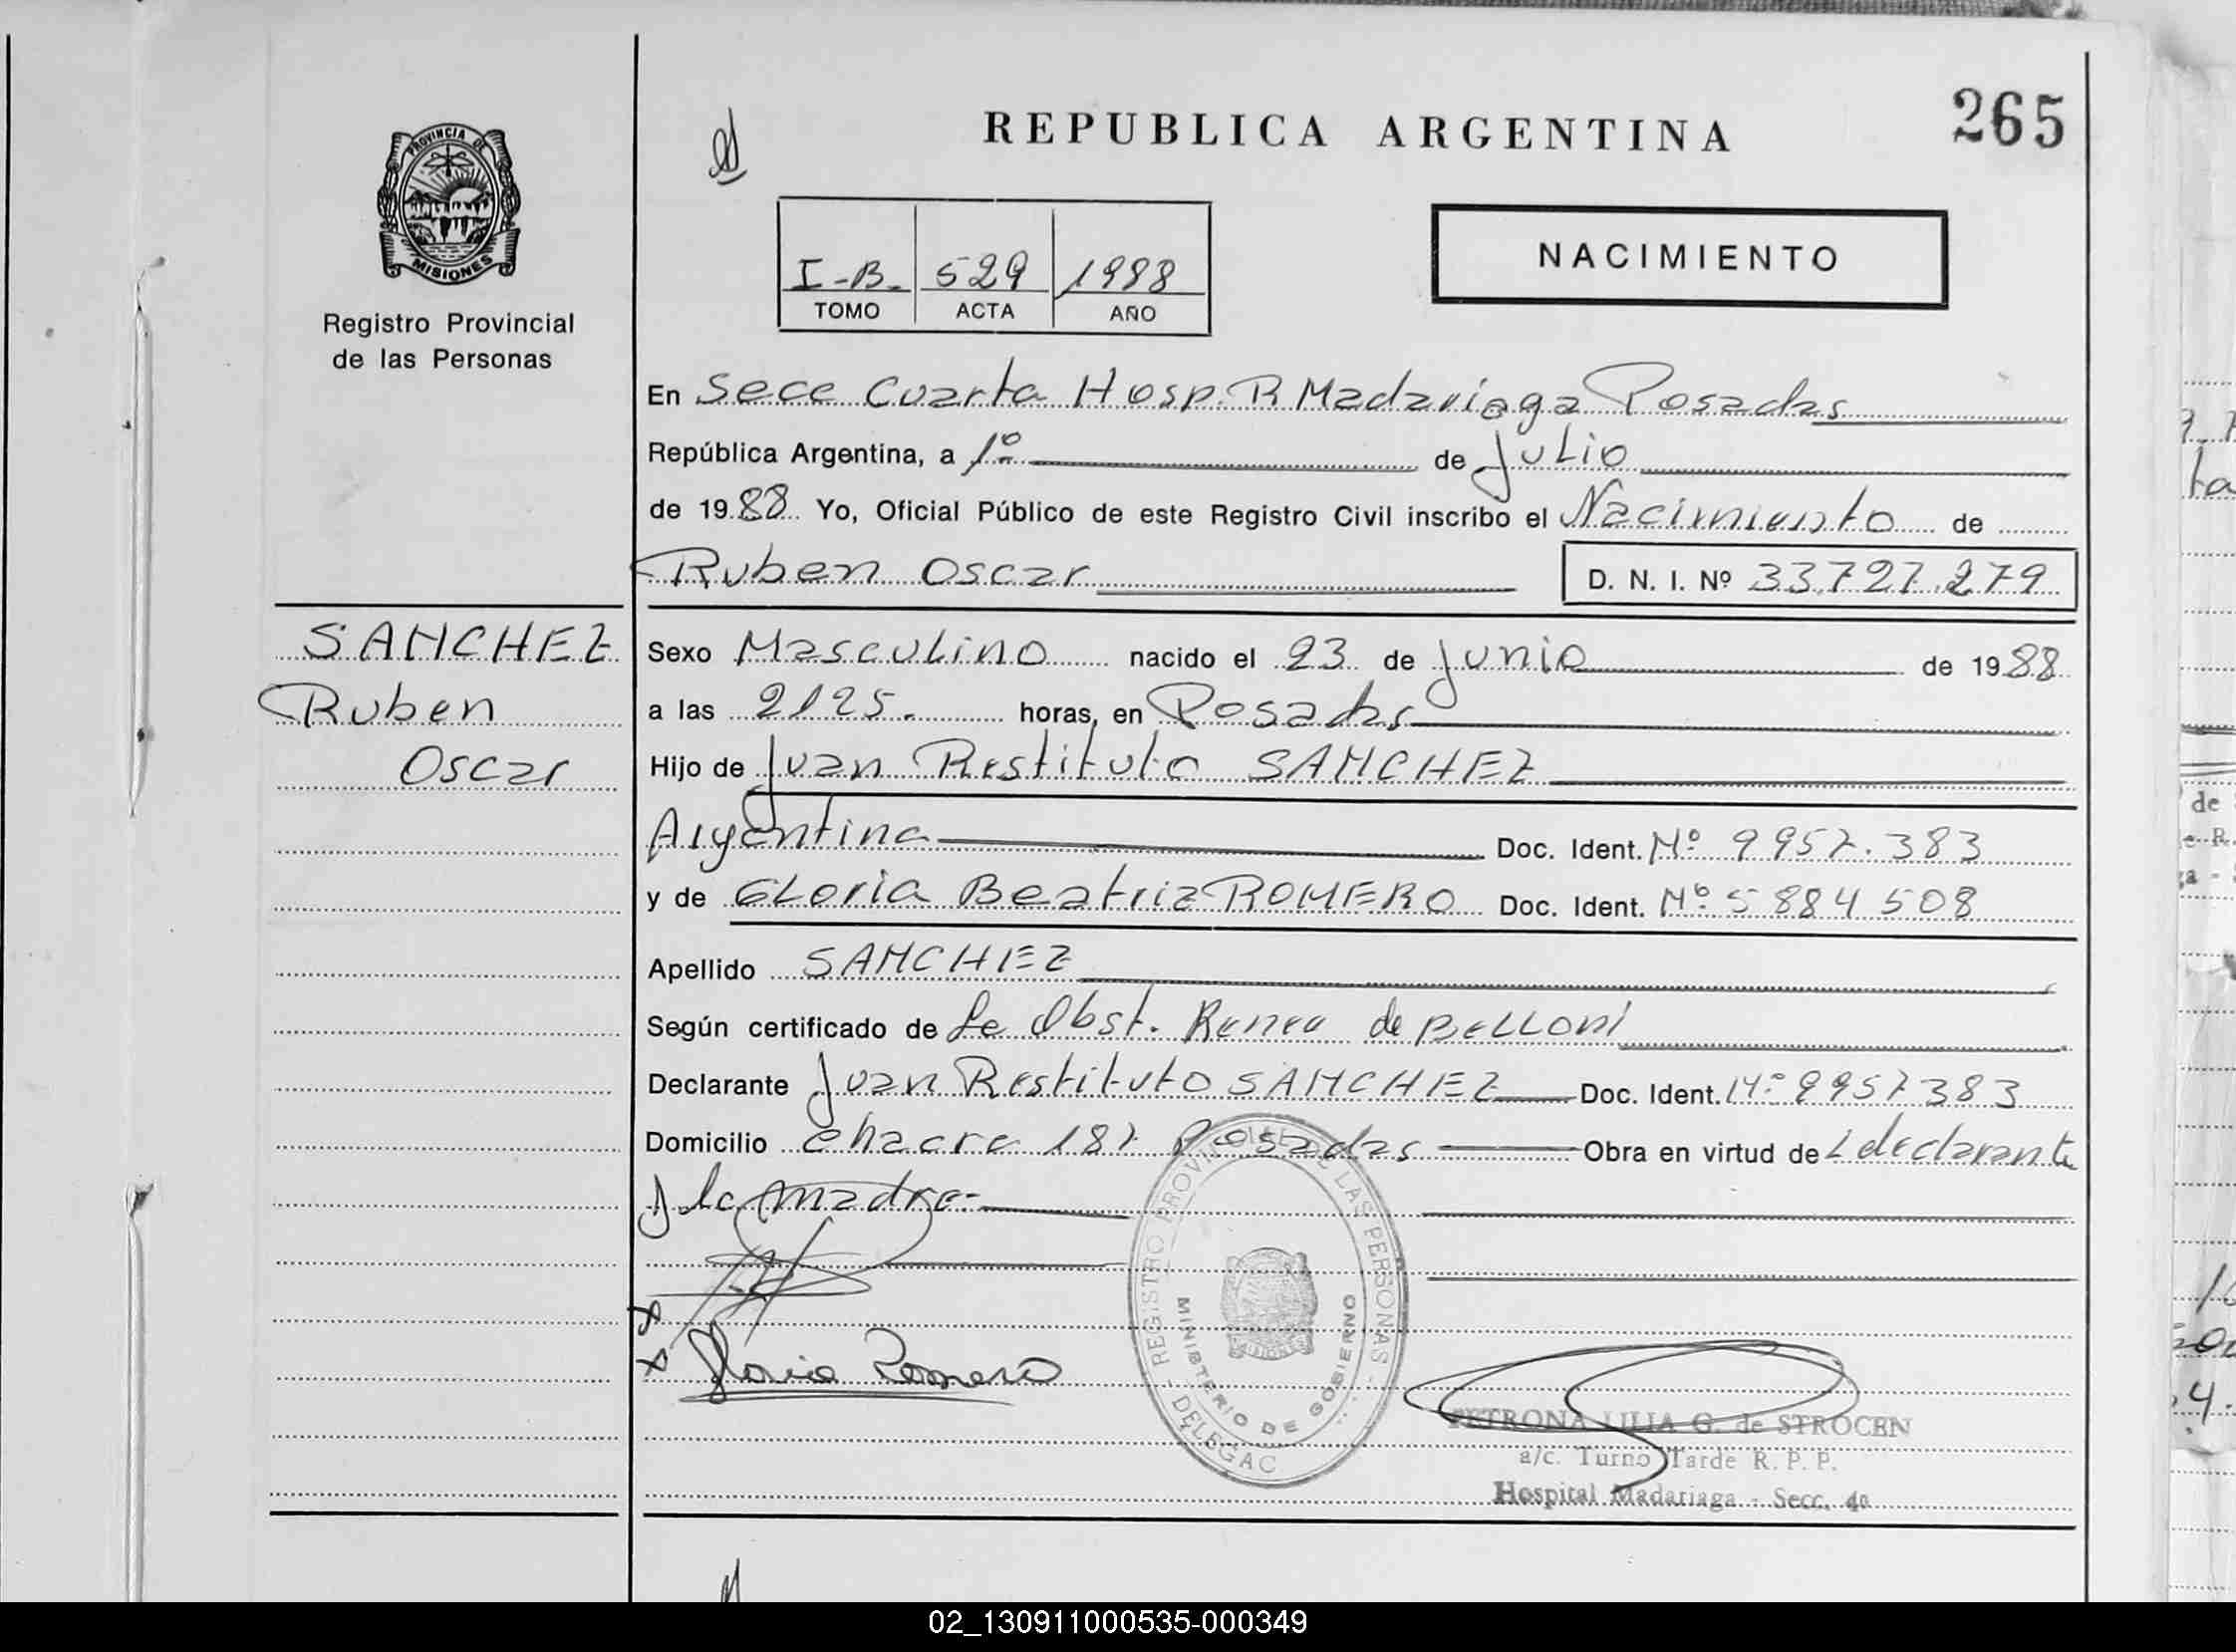 REPUBLICA ARGENTINA
265
PROVINCIA DE
MISIONES
Registro Provincial
de las Personas
I-B- 529 1988
TOMO ACTA AÑO
NACIMIENTO
En Secc Cuarta Hosp. R Madariaga Posadas
República Argentina, a 1º de Julio
de 1988 Yo, Oficial Público de este Registro Civil inscribo el Nacimiento de
Ruben Oscar
D. N. I. Nº 33.727.279
SANCHEZ
Ruben
Oscar
Sexo Masculino nacido el 23 de junio de 1988
a las 2125. horas, en Posadas
Hijo de Juan Restituto SANCHEZ
Argentina Doc. Ident. Nº 9957.383
y de Gloria Beatriz ROMERO Doc. Ident. Nº 5884508
Apellido SANCHEZ
Según certificado de Obst. de BELLONI
Declarante Juan Restituto SANCHEZ Doc. Ident. Nº 9957383
Domicilio chacra 187 Posadas Obra en virtud de declarante
y la madre-
Gloria Romero
REGISTRO PROVINCIAL DE LAS PERSONAS - DELEGAC
MINISTERIO DE GOBIERNO
PETRONA LILIA G. de STROCEN
a/c. Turno Tarde R. P. P.
Hospital Madariaga - Secc. 4a
02_130911000535-000349